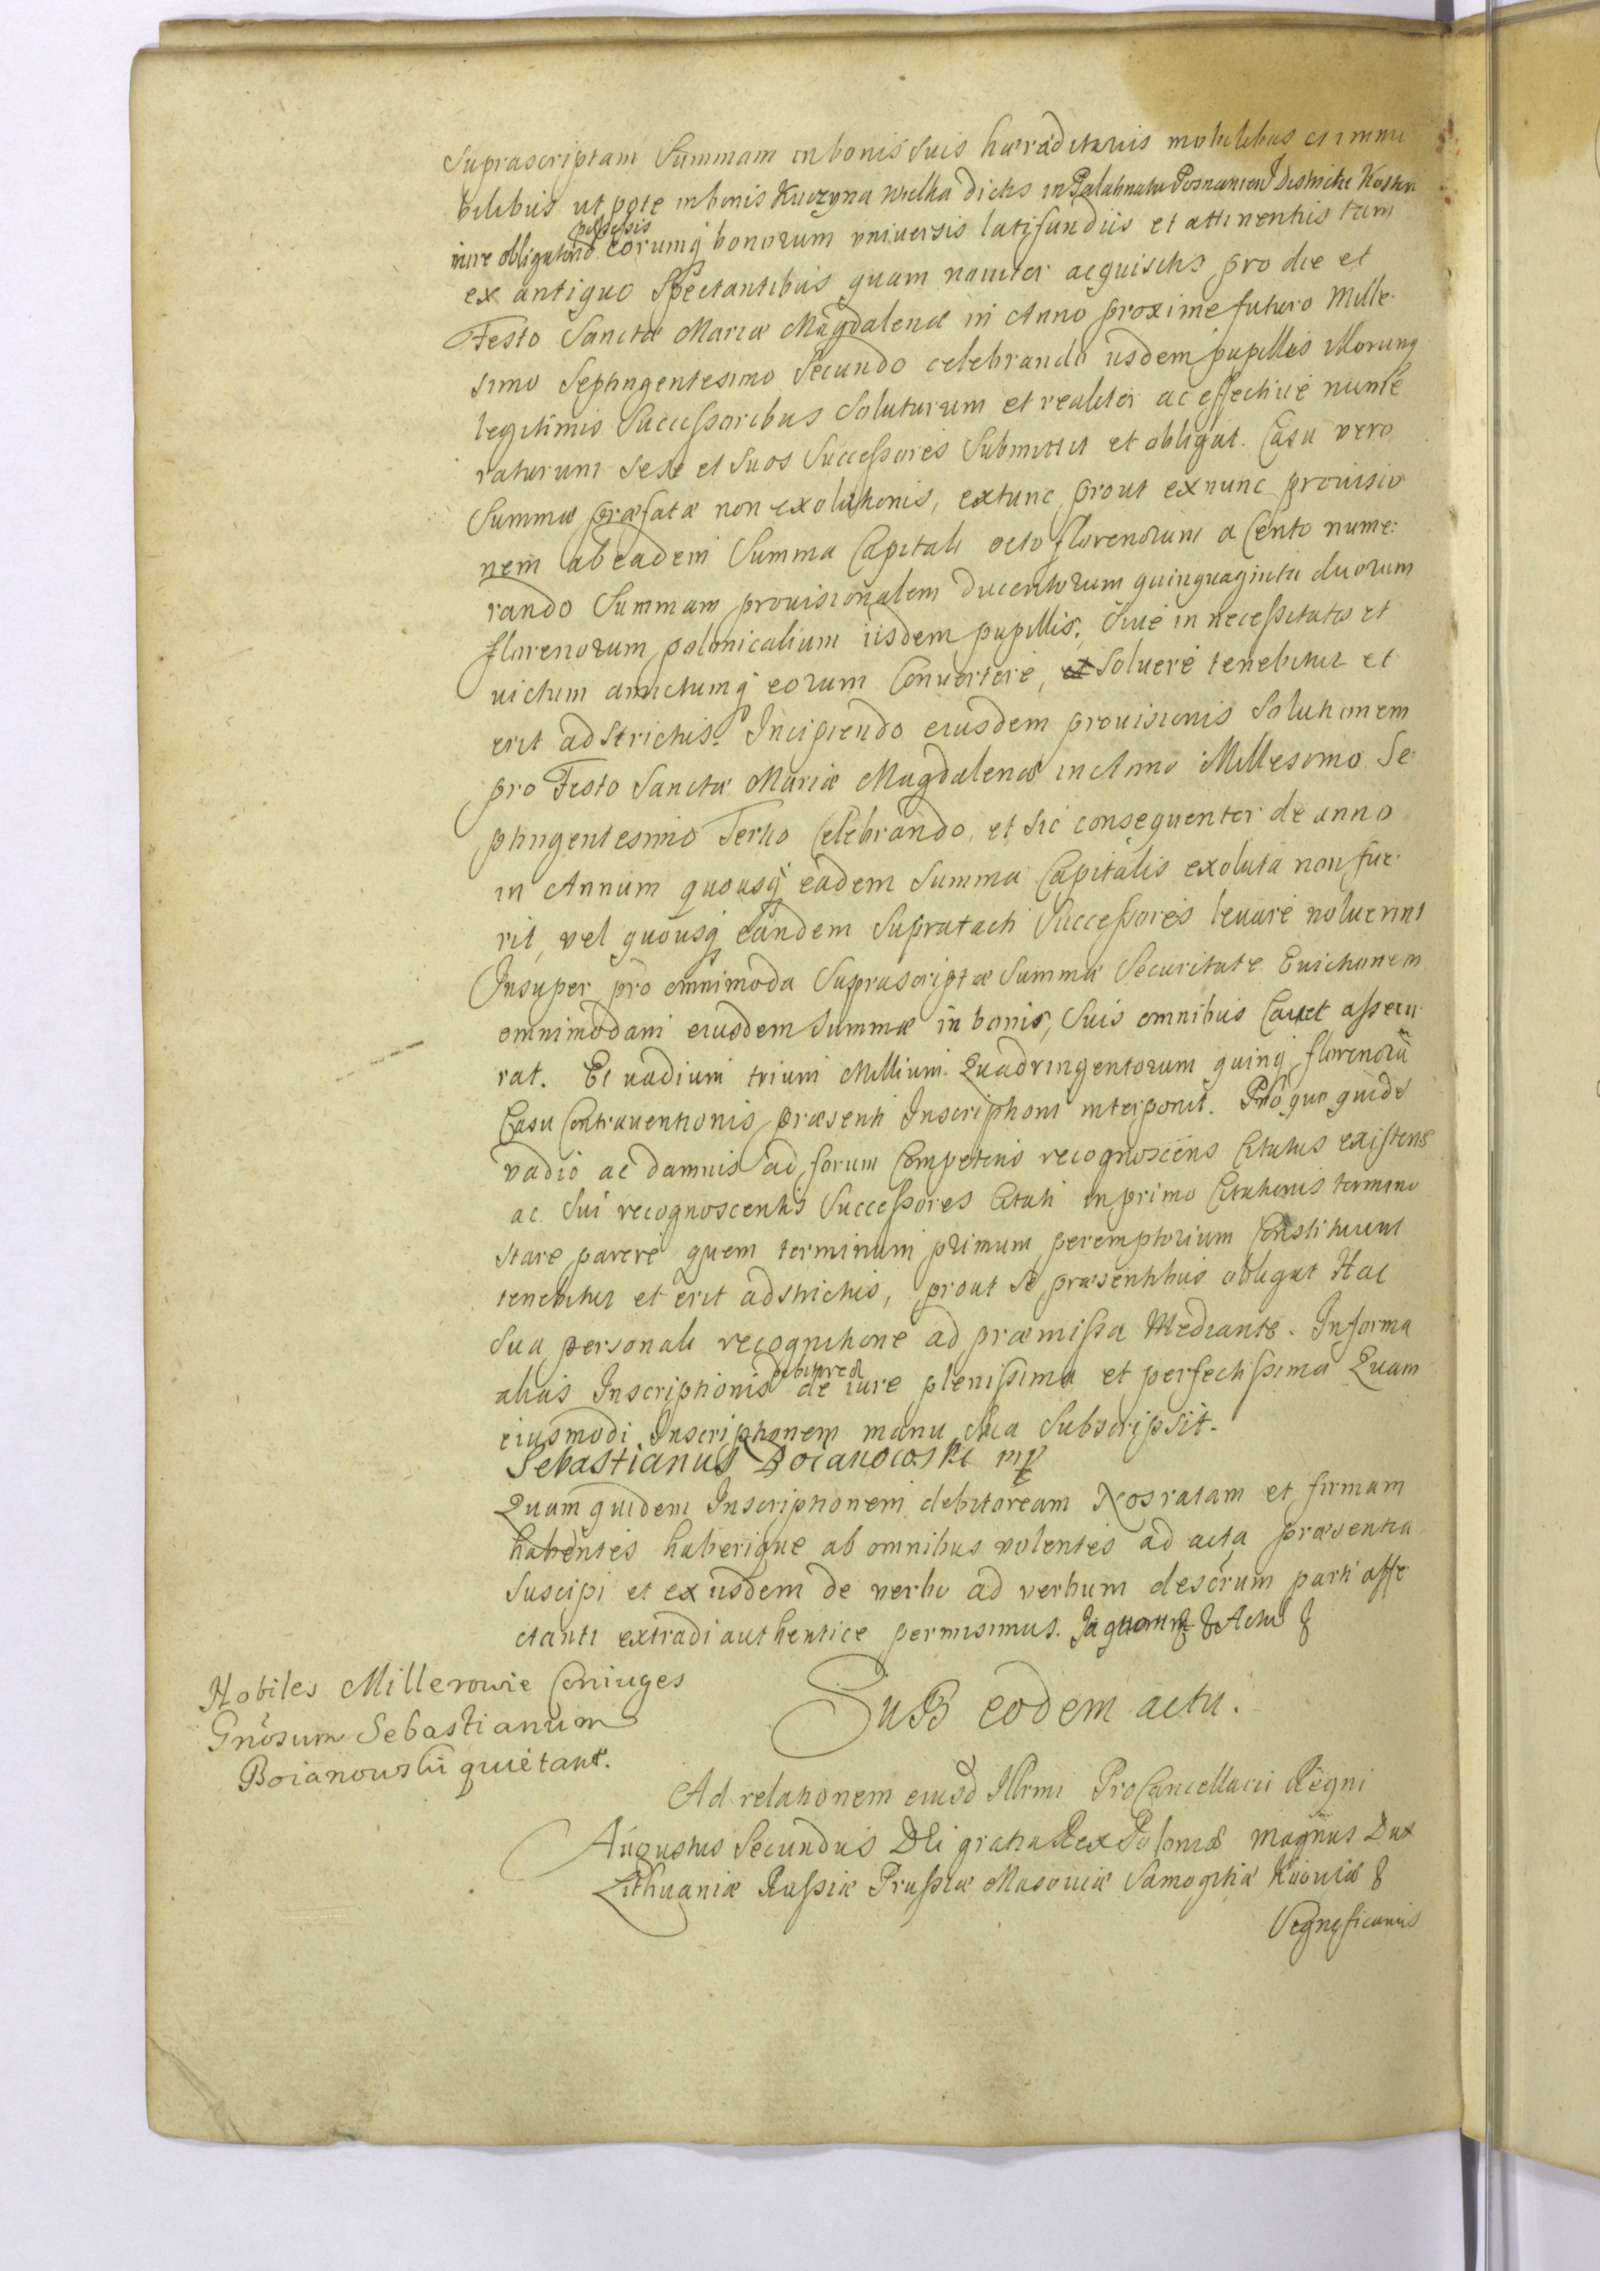 Suprascriptam Summam in bonis suis hæreditariis mobilibus et immo
bilibus ut pote in bonis Kuczyna wielka dictis in Palatinatu Posnanien Districtu Kosten
possessis
iure obligatorio eorumq bonorum vniuersis latifundiis et attinentiis tam
ex antiquo Spectantibus quam nouiter acquisitis pro die et
Festo Sanctæ Mariæ Magdalenæ in Anno proxime futuro Mille-
simo Septingentesimo Secundo celebrando iisdem pupillis illorumq
legitimis Successoribus Soluturum et realiter ac effectiué nume
raturum sese et suos Successores Submittit et obligat. Casu vero
Summæ præfatæ non exolutionis, extunc prout exnunc prouisio
nem ab eadem Summa Capitali octo florenorum a Cento nume:
rando Summam prouisionalem ducentorum quinquaginta duorum
florenorum polonicalium iisdem pupillis, siué in necessitates et
victum amictumq eorum Conuertere, et Soluere tenebitur et
erit adstrictus. Incipiendo eiusdem prouisionis Solutionem
pro Festo Sanctæ Mariæ Magdalenæ in Anno Millesimo Se
ptingentesimo Tertio Celebrando, et sic consequenter de anno
in Annum quousq eadem Summa Capitalis exoluta non fue-
rit, vel quousq eandem Supratacti Successores leuare noluerint
Insuper pro omnimoda Suprascriptæ Summæ Securitate Euictionem
omnimodam eiusdem summæ in bonis, suis omnibus Cauet assecu
rat. Et vadium trium Millium Quadringentorum quinq florenorũ
Casu Contrauentionis præsenti Inscriptioni interponit. Pro quo quidẽ
vadio ac damnis ad forum Competens recognoscens Citatus existens
ac sui recognoscentis Successores Citati in primo Citationis termino
stare parere quem terminum primum peremptorium Constituunt
tenebitur et erit adstrictus, prout se præsentibus obligat Hac
sua personali recognitione ad præmissa Mediante. In forma
debitoreæ
alias Inscriptionis de iure plenissima et perfectissima Quam
eiusmodi Inscriptionem manu sua Subscripsit.
Sebastianus Boianowski mp
Quam quidem Inscriptionem debitoream Nos ratam et firmam
habentes haberique ab omnibus volentes ad acta præsentia
suscipi et ex iisdem de verbo ad verbum descrum parti affe
ctanti extradi authentice permisimus. In quorum & & Actu &
Nobiles Millerowie Coniuges
Gnosum Sebastianum
Boianowski quiétant.
SuB eodem actu.
Ad relationem eiusd Illrmi ProCancellarii Regni
Augustus Secundus Dei gratia Rex Poloniæ magnus Dux
Lithuaniæ Russiæ Prussiæ Masouiæ Samogitiæ Kiiouiæ &
Significamus